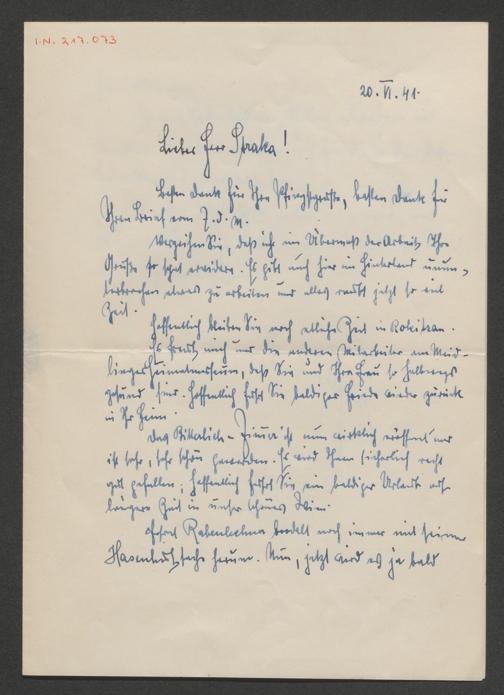 I.N. 217.073
20. VI. 41.
Lieber Herr Spraka!
Besten Dank für Ihre Pfingstgrüße, besten Dank für
Ihren Brief vom 7. d. M.
Verzeihen Sie, daß ich im Übermaß der Arbeit, Ihre
Grüße so spät erwidere. Es gibt auch hier im Hinterland ununter-
brochen etwas zu arbeiten und alles raubt jetzt so viel
Zeit.
Hoffentlich bleiben Sie noch etliche Zeit in Rokitzan.
Es freut mich und die anderen Mitarbeiter am Meid-
linger Heimatmuseum, daß Sie und Ihre Frau so halbwegs
gesund sind. Hoffentlich führt Sie baldiger Friede wieder zurück
in Ihr Heim.
Das Zimmer ist nun wirklich eröffnet und
ist sehr, sehr schön geworden. Es wird Ihnen sicherlich recht
gut gefallen. Hoffentlich führt Sie ein baldiger Urlaub auf
längere Zeit in unser schönes Wien.
Rabenlechner bandelt noch immer mit seiner
Hasenhut herum. Nun, jetzt wird es ja bald